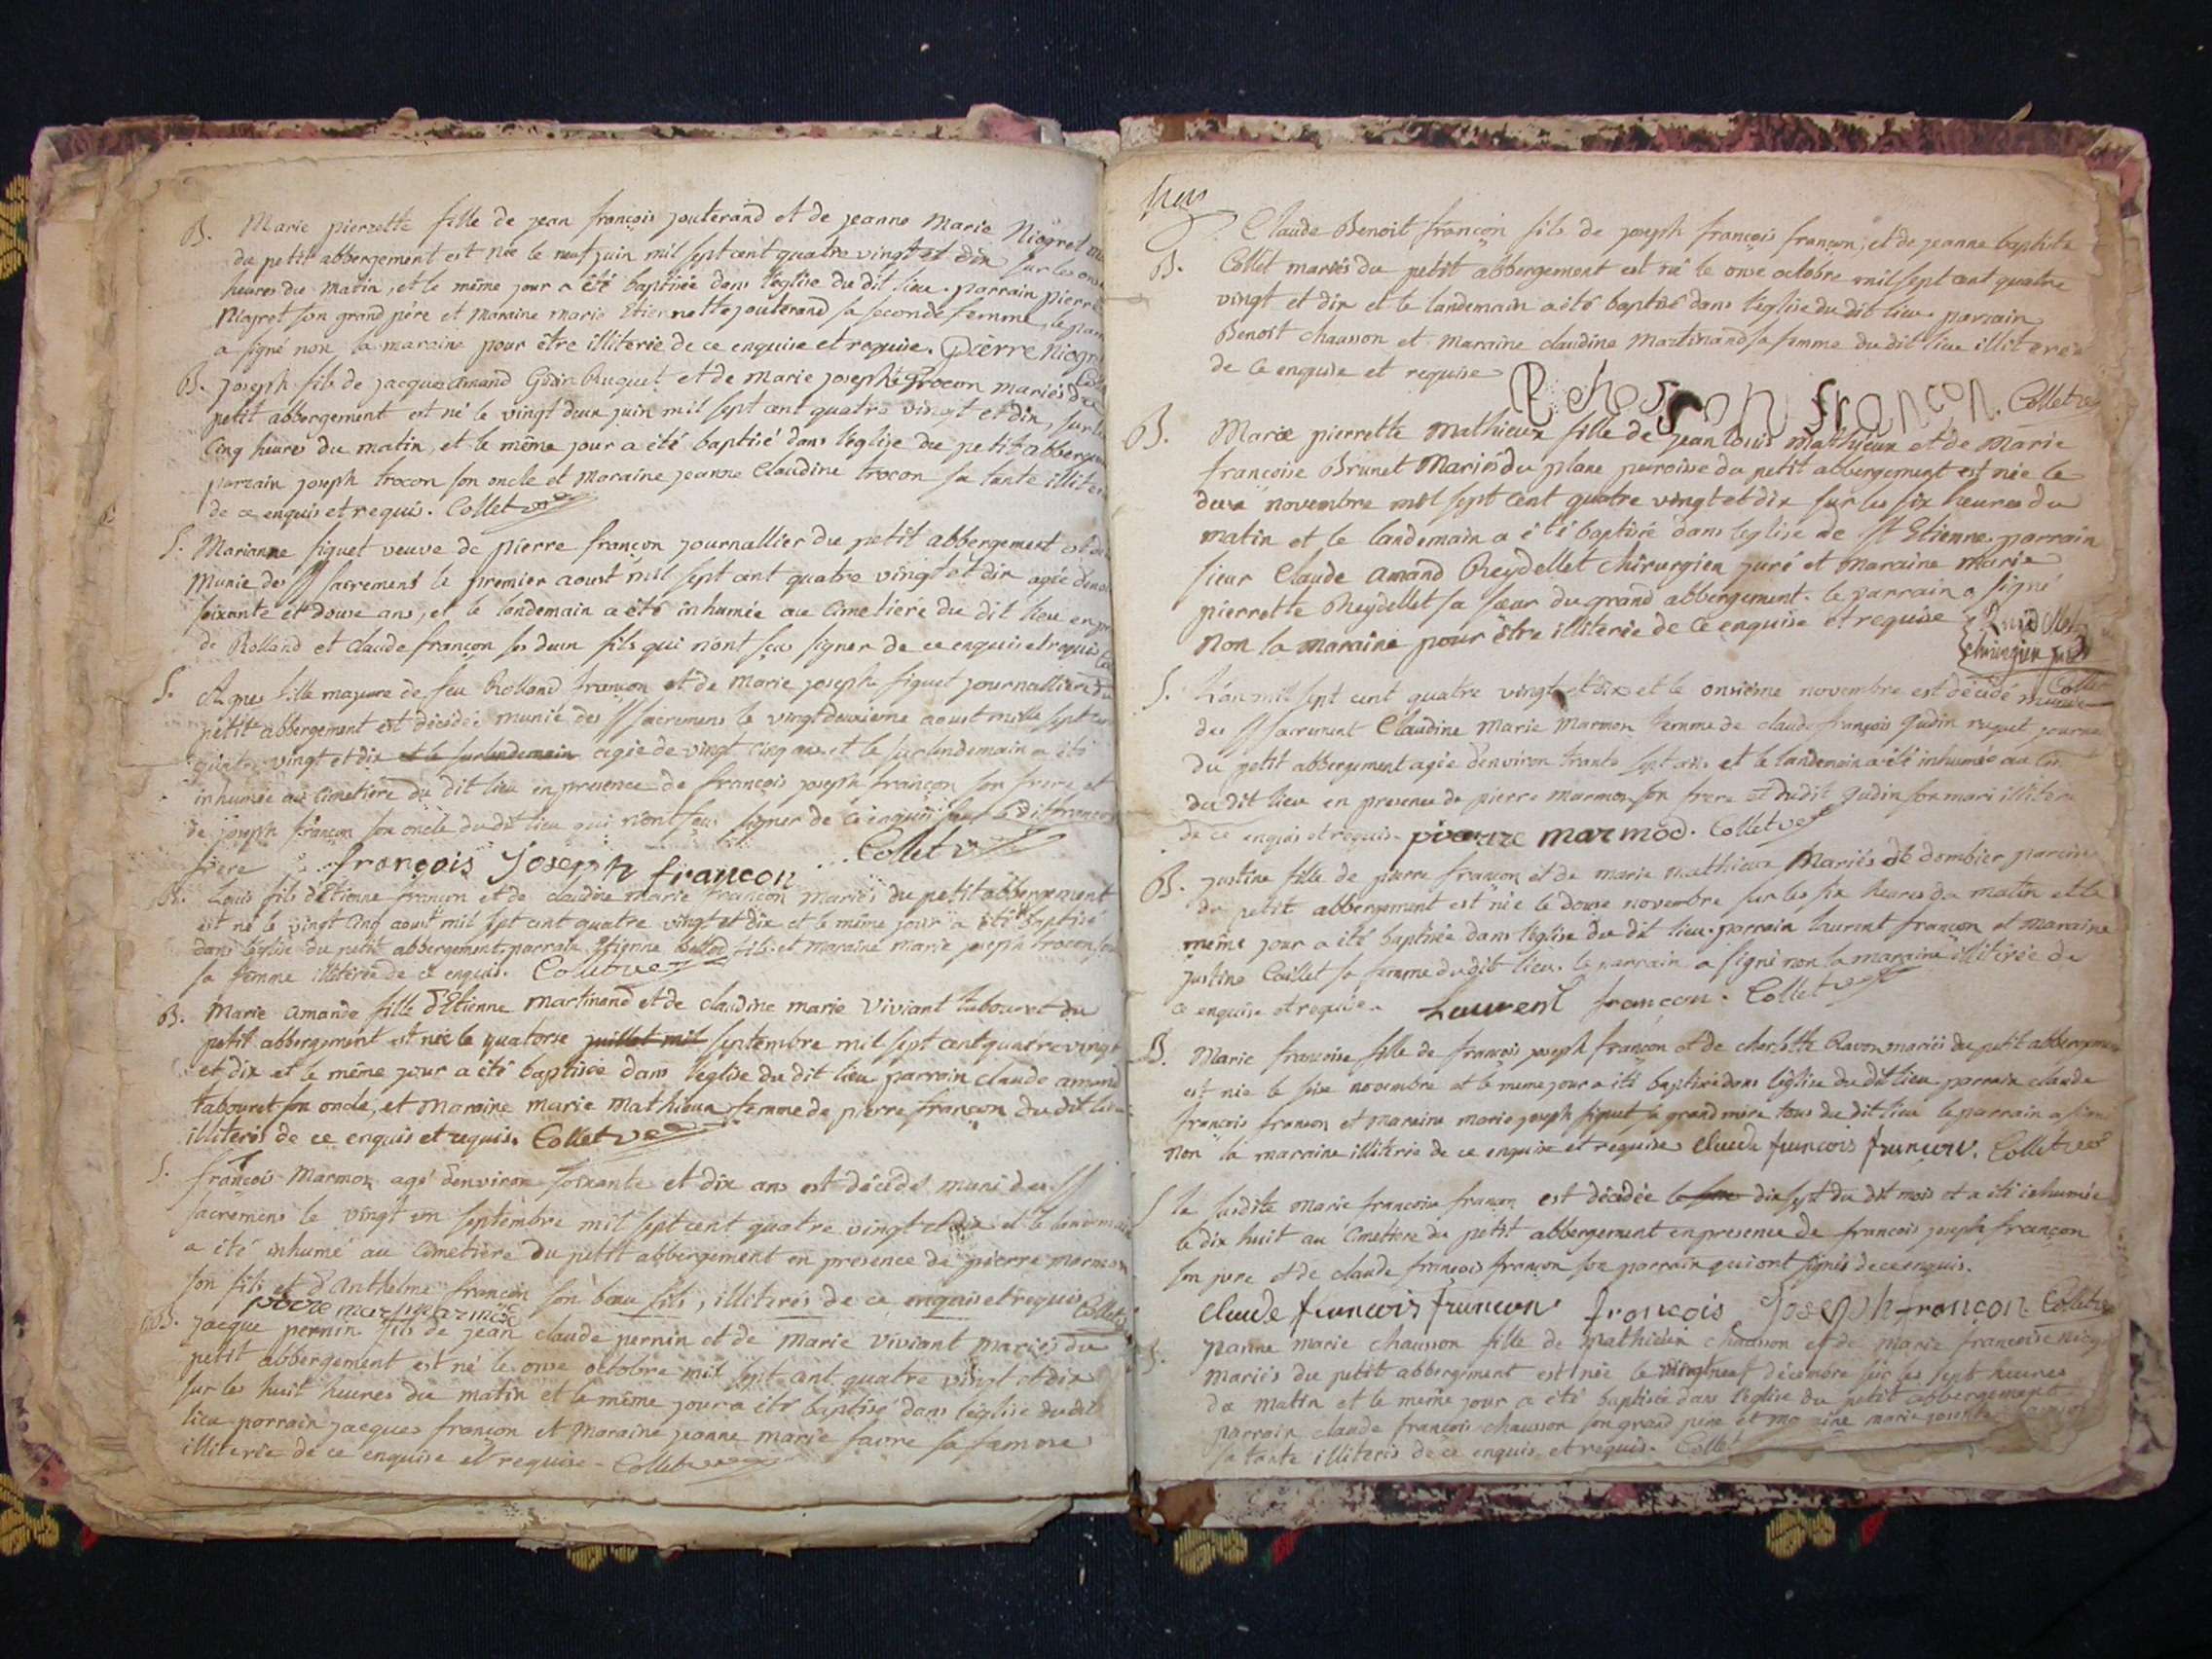 B. Marie pierrette fille de jean françois jouterand et de jeanne Marie Niogret
du petit abbergement est née le neuf juin mil sept cent quatre vingt et dix sur les onse
heures du matin, et le même jour a été baptisée dans l'église du dit lieu. parrain pierre
Niogret son grand père et maraine marie Etiennette jouterand sa seconde femme, le
a signé non la maraine pour être illiterée de ce enquise et requise. pierre niogret
B. joseph fils de jacques amand Ruquet et de marie josephe trocon mariés du
petit abbergement est né le vingt deux juin mil sept cent quatre vingt et dix, sur les
cinq heures du matin, et le même jour a été baptisé dans l'église du petit abbergement
parrain joseph trocon son oncle et maraine jeanne Claudine trocon sa tante
de ce enquis et requis. Collet
S. Marianne siguet veuve de pierre françon journallier du petit abbergement
munie des SS sacremens le premier aoust mil sept cent quatre vingt et dix agée
soixante et douse ans, et le landemain a été inhumée au cimetière du dit lieu
de Rolland et claude françon ses deux fils qui n'ont sçu signer de ce enquis et requis
S. fille majeure de feu Rolland françon et de marie joseph siguet journalliere du
petit abbergement est décédée munie des SS sacremens le vingt deuxieme aoust mille sept cent
quatre vingt et dix et le surlendemain agée de vingt cinq ans et le surlendemain a été
inhumée au cimetière du dit lieu en presence de françois joseph françon son frere et
de joseph françon son oncle du dit lieu qui n'ont sçu signer de ce enquis le dit françois
frere françois joseph françon Collet
B. Louis fils d'Etienne françon et de claudine marie françon mariés du petit abbergement
est né le vingt cinq aoust mil sept cent quatre vingt et dix et le même jour a été baptisé
dans l'église du petit abbergement, parrain Etienne fils et maraine marie joseph trocon
sa femme illiterée de ce enquis. Collet
B. Marie amande fille d'Etienne martinand et de claudine marie Viviant tabouret du
petit abbergement est née le quatorse juillet mil septembre mil sept cent quatre vingt
et dix et le même jour a été baptisée dans l'église du dit lieu parrain claude amand
tabouret son oncle, et maraine marie mathieux femme de pierre françon du dit lieu
illiterés de ce enquis et requis. Collet
S. françois Marmon agé d'environ soixante et dix ans est décédé muni des SS
sacremens le vingt un septembre mil sept cent quatre vingt et dix et le landemain
a été inhumé au cimetière du petit abbergement en presence de pierre marmon
son fils et d'Anthelme françon son beau fils, illiterés de ce enquis et requis Collet
B. jacque pernin fils de jean claude pernin et de marie viviant mariés du
petit abbergement est né le onse octobre mil sept cent quatre vingt et dix
sur les huit heures du matin et le même jour a été baptisé dans l'église du dit
lieu parrain jacques françon et maraine jeanne marie favre sa femme
illiterée de ce enquise et requise - Collet
Claude Benoit françon fils de joseph françois françon, et de jeanne baptiste
B. Collet mariés du petit abbergement est né le onse octobre mil sept cent quatre
vingt et dix et le landemain a été baptisé dans l'église du dit lieu. parrain
Benoit chausson et maraine claudine Martinand sa femme du dit lieu
de ce enquise et requise françon. Collet
B. Marie pierrette mathieux fille de jean louis mathieux et de Marie
françoise Brunet Mariés du plane paroisse du petit abbergement est née le
deux novembre mil sept cent quatre vingt et dix sur les six heures du
matin et le landemain a été baptisée dans l'église de St Etienne. parrain
sieur Claude amand Reydellet chirurgien juré et maraine marie
pierrette Reydellet sa sœur du grand abbergement. le parrain a signé
non la maraine pour être illiterée de ce enquise et requise Reidellet
chirurgien juré
Collet
S. L'an mil sept cent quatre vingt et dix et le onsieme novembre est décédé munie
des SS sacrement Claudine marie Marmon femme de claude françois gudin ruquet
du petit abbergement agée d'environ trante sept ans et le landemain a été inhumée au
du dit lieu en presence de pierre marmon son frere et du dit gudin son mari
de ce enquis et requis. pierre marmod. Collet
B. justine fille de pierre françon et de marie mathieux Mariés de dombier
du petit abbergement est née le douse novembre sur les six heures du matin et le
même jour a été baptisée dans l'église du dit lieu. parrain laurent françon et maraine
justine Caillet sa femme du dit lieu. le parrain a signé non la maraine illiterée de
ce enquise et requise. Laurent françon. Collet
B. Marie françoise fille de françois joseph françon et de charlotte Ravon mariés du petit abbergement
est née le six novembre et le meme jour a été baptisée dans l'église du dit lieu parrain claude
françois françon et maraine marie joseph siguet sa grand mère tous du dit lieu le parrain a signé
non la marraine illiterée de ce enquise et requise claude françois françon. Collet
S la susdite marie françoise françon est décédée dix sept du dit mois et a été inhumée
le dix huit au cimetiere du petit abbergement en presence de francois joseph françon
son pere et de claude françois françon son parrain qui ont signés de ce enquis.
claude françois françon françois joseph françon Collet
B. jeanne marie chausson fille de mathieux chausson et de marie francoise
mariés du petit abbergement est née le décembre sur les sept heures
du matin et le meme jour a été baptisée dans l'église du petit abbergement
parrain claude françois chausson son grand pere et maraine marie
sa tante illiterés de ce enquis et requis. Collet